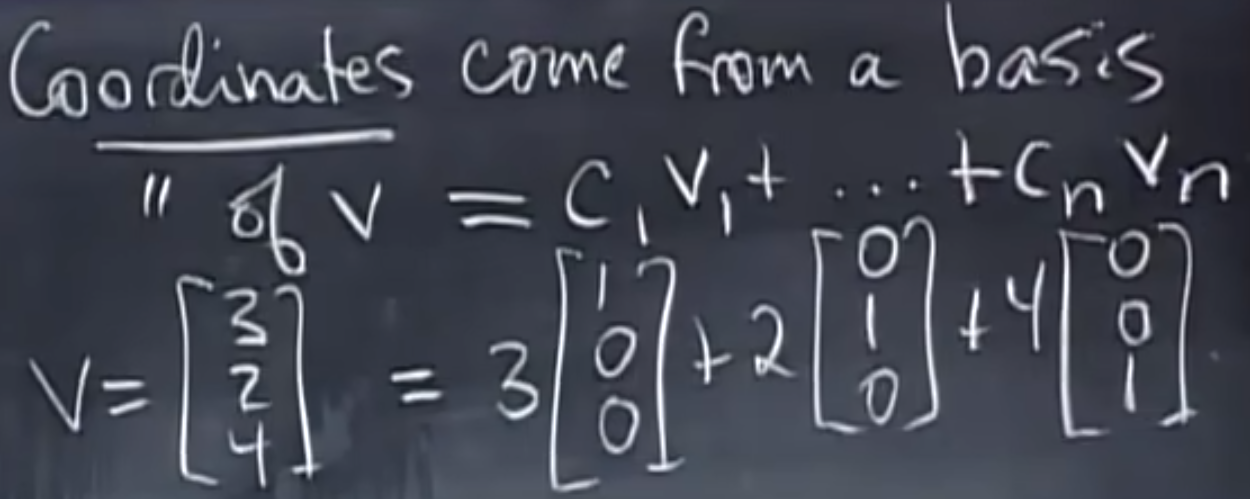 Coordinates come from a basis
" of v = c₁v₁ + ... + cₙvₙ
v = [3 2 4] = 3 [1 0 0] + 2 [0 1 0] + 4 [0 0 1]